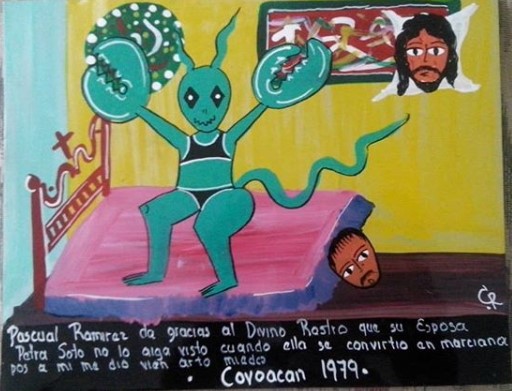 Pascual Ramirez da gracias al Divino Rostro que su Esposa
Petra Soto no lo aiga visto cuando ella se convirtio en marciana
pos a mi me dio vien arto miedo
. Covoacan 1979.